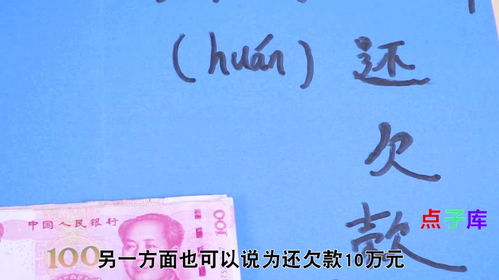 (huán) 还
欠
款
点子库
中国人民银行
100
另一方面也可以说为还欠款10万元